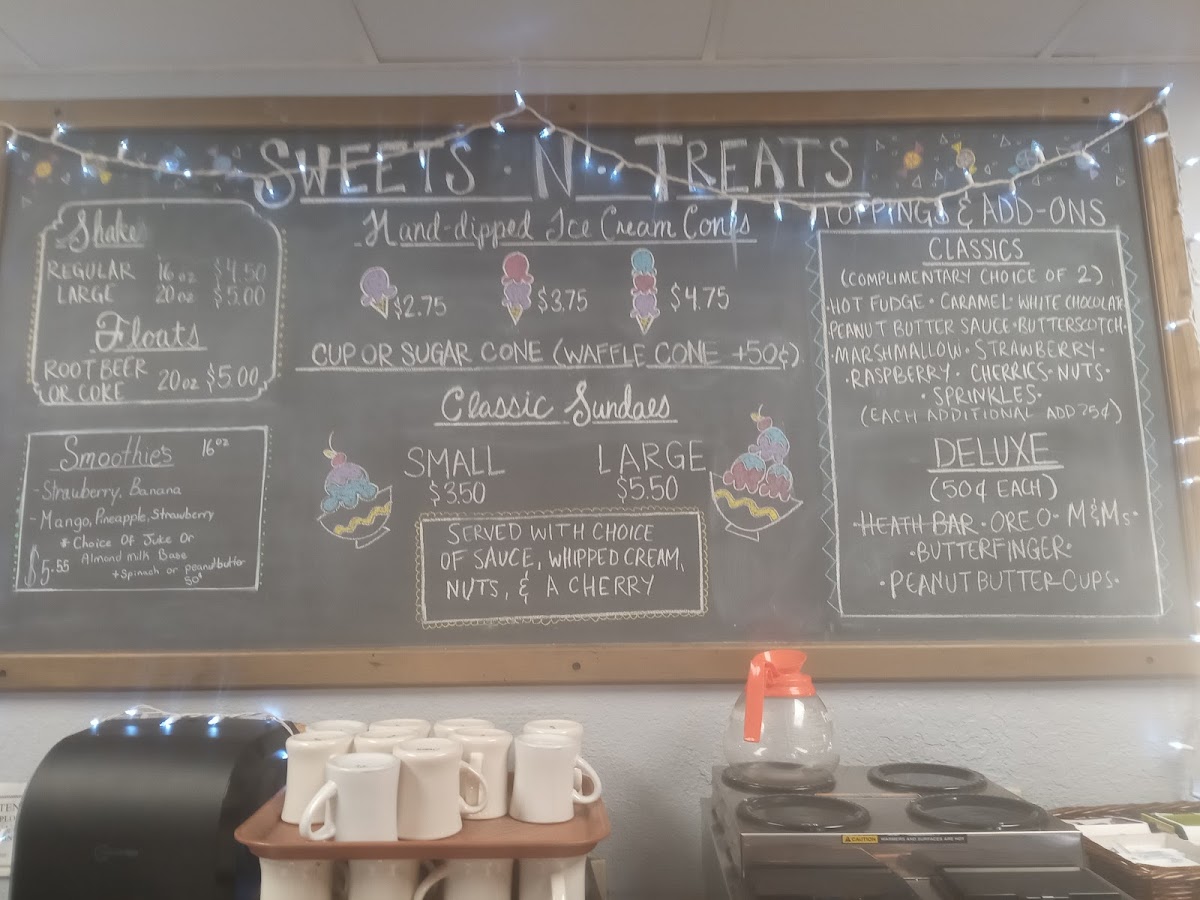 SWEETS · N · TREATS
Shake
REGULAR 16 oz $4.50
LARGE 20 oz $5.00
Floats
ROOT BEER
OR COKE 20 oz $5.00
Smoothie's 16 oz
- Strawberry, Banana
- Mango, Pineapple, Strawberry
* Choice Of Juke Or
Almond milk Base
$5.55 + Spinach or peanut butter
50¢
Hand-dipped Ice Cream Cones
$2.75 $3.75 $4.75
CUP OR SUGAR CONE (WAFFLE CONE +50¢)
Classic Sundaes
SMALL LARGE
$3.50 $5.50
SERVED WITH CHOICE
OF SAUCE, WHIPPED CREAM,
NUTS, & A CHERRY
TOPPINGS & ADD-ONS
CLASSICS
(COMPLIMENTARY CHOICE OF 2)
·HOT FUDGE · CARAMEL · WHITE CHOCOLATE
PEANUT BUTTER SAUCE · BUTTERSCOTCH·
·MARSHMALLOW · STRAWBERRY·
·RASPBERRY · CHERRIES · NUTS·
· SPRINKLES ·
(EACH ADDITIONAL ADD 25¢)
DELUXE
(50¢ EACH)
HEATH BAR · OREO · M&Ms·
·BUTTERFINGER·
·PEANUT BUTTER CUPS·
CAUTION WARMERS AND SURFACES ARE HOT